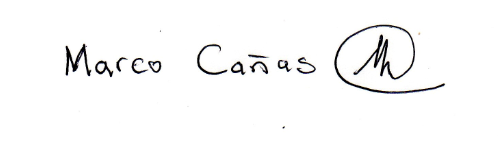 Marco Cañas